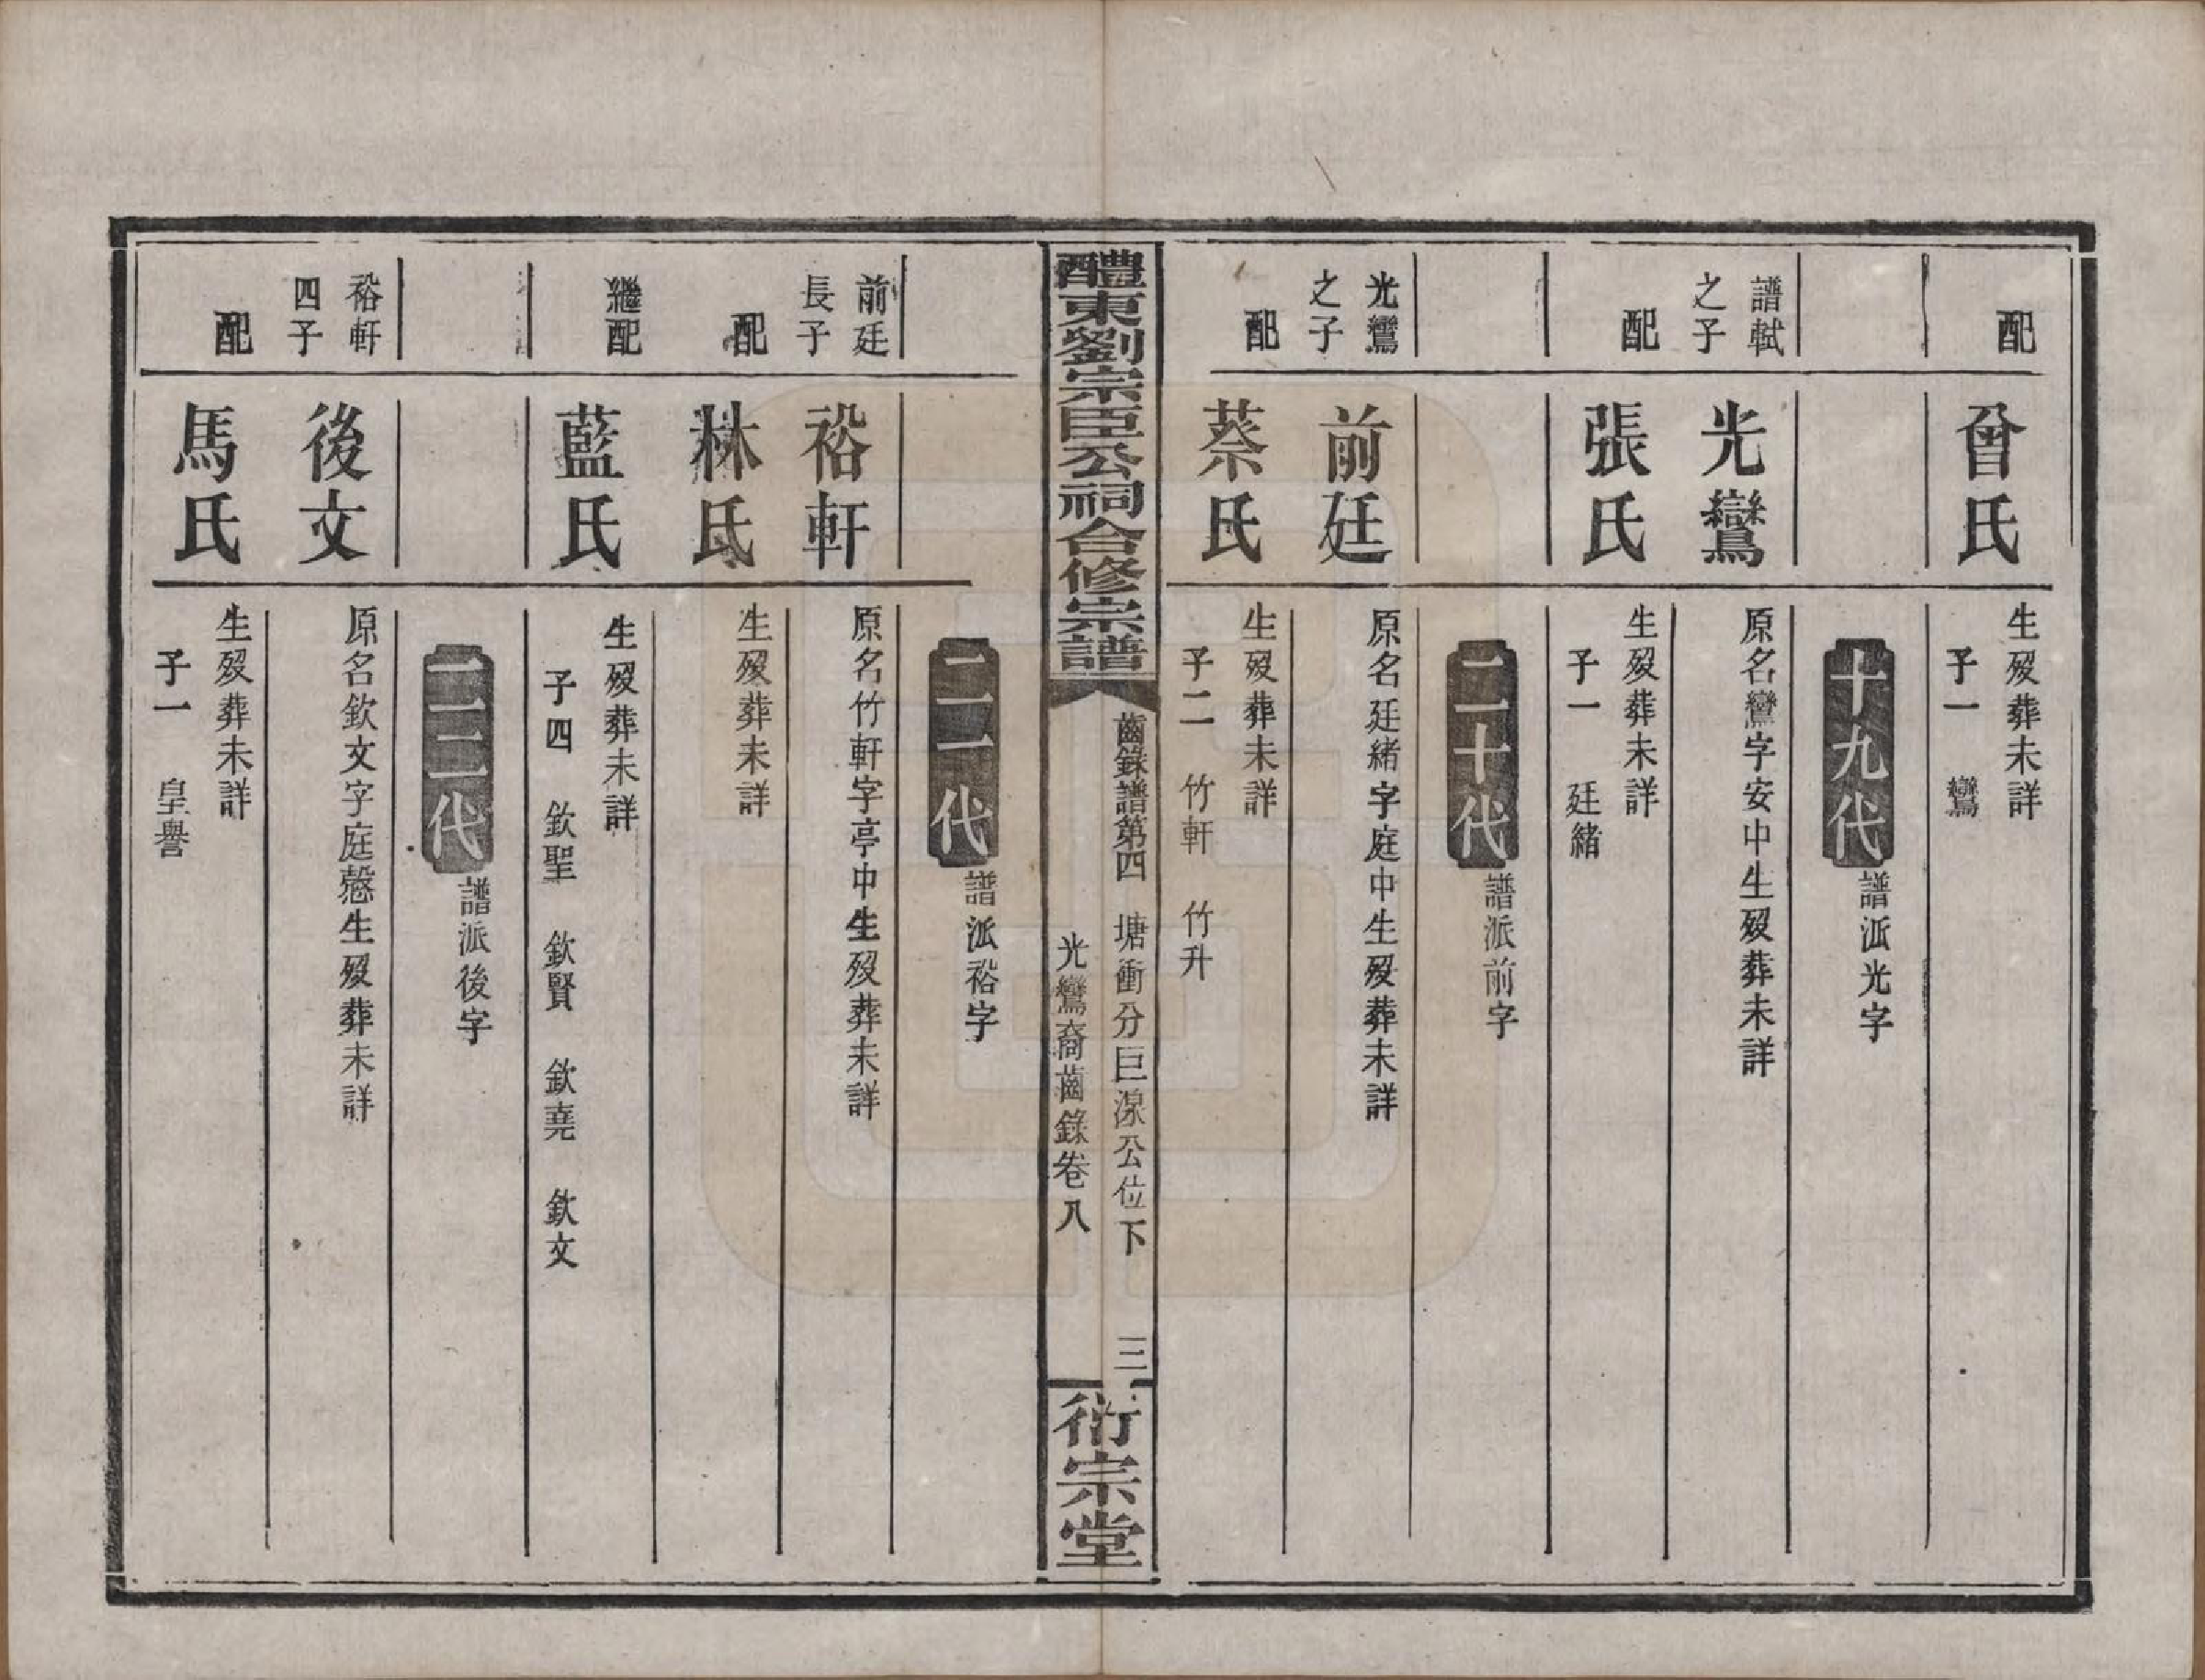 配
曾氏
生歿葬未詳
子一　鸞
十九代
譜派光字
譜軾
之子
光鸞
原名鸞字安中生歿葬未詳
配
張氏
生歿葬未詳
子一　廷緒
二十代
譜派前字
光鸞
之子
前廷
原名廷緒字庭中生歿葬未詳
配
蔡氏
生歿葬未詳
子二　竹軒　竹升
醴東劉宗臣公祠合修宗譜
齒錄譜第四　塘衝分巨湶公位下
光鸞裔齒錄卷八
三
衍宗堂
二一代
譜派裕字
前廷
長子
裕軒
原名竹軒字亭中生歿葬未詳
配
林氏
生歿葬未詳
繼配
藍氏
生歿葬未詳
子四　欽聖　欽賢　欽堯　欽文
二二代
譜派後字
裕軒
四子
後文
原名欽文字庭慇生歿葬未詳
配
馬氏
生歿葬未詳
子一　皇譽